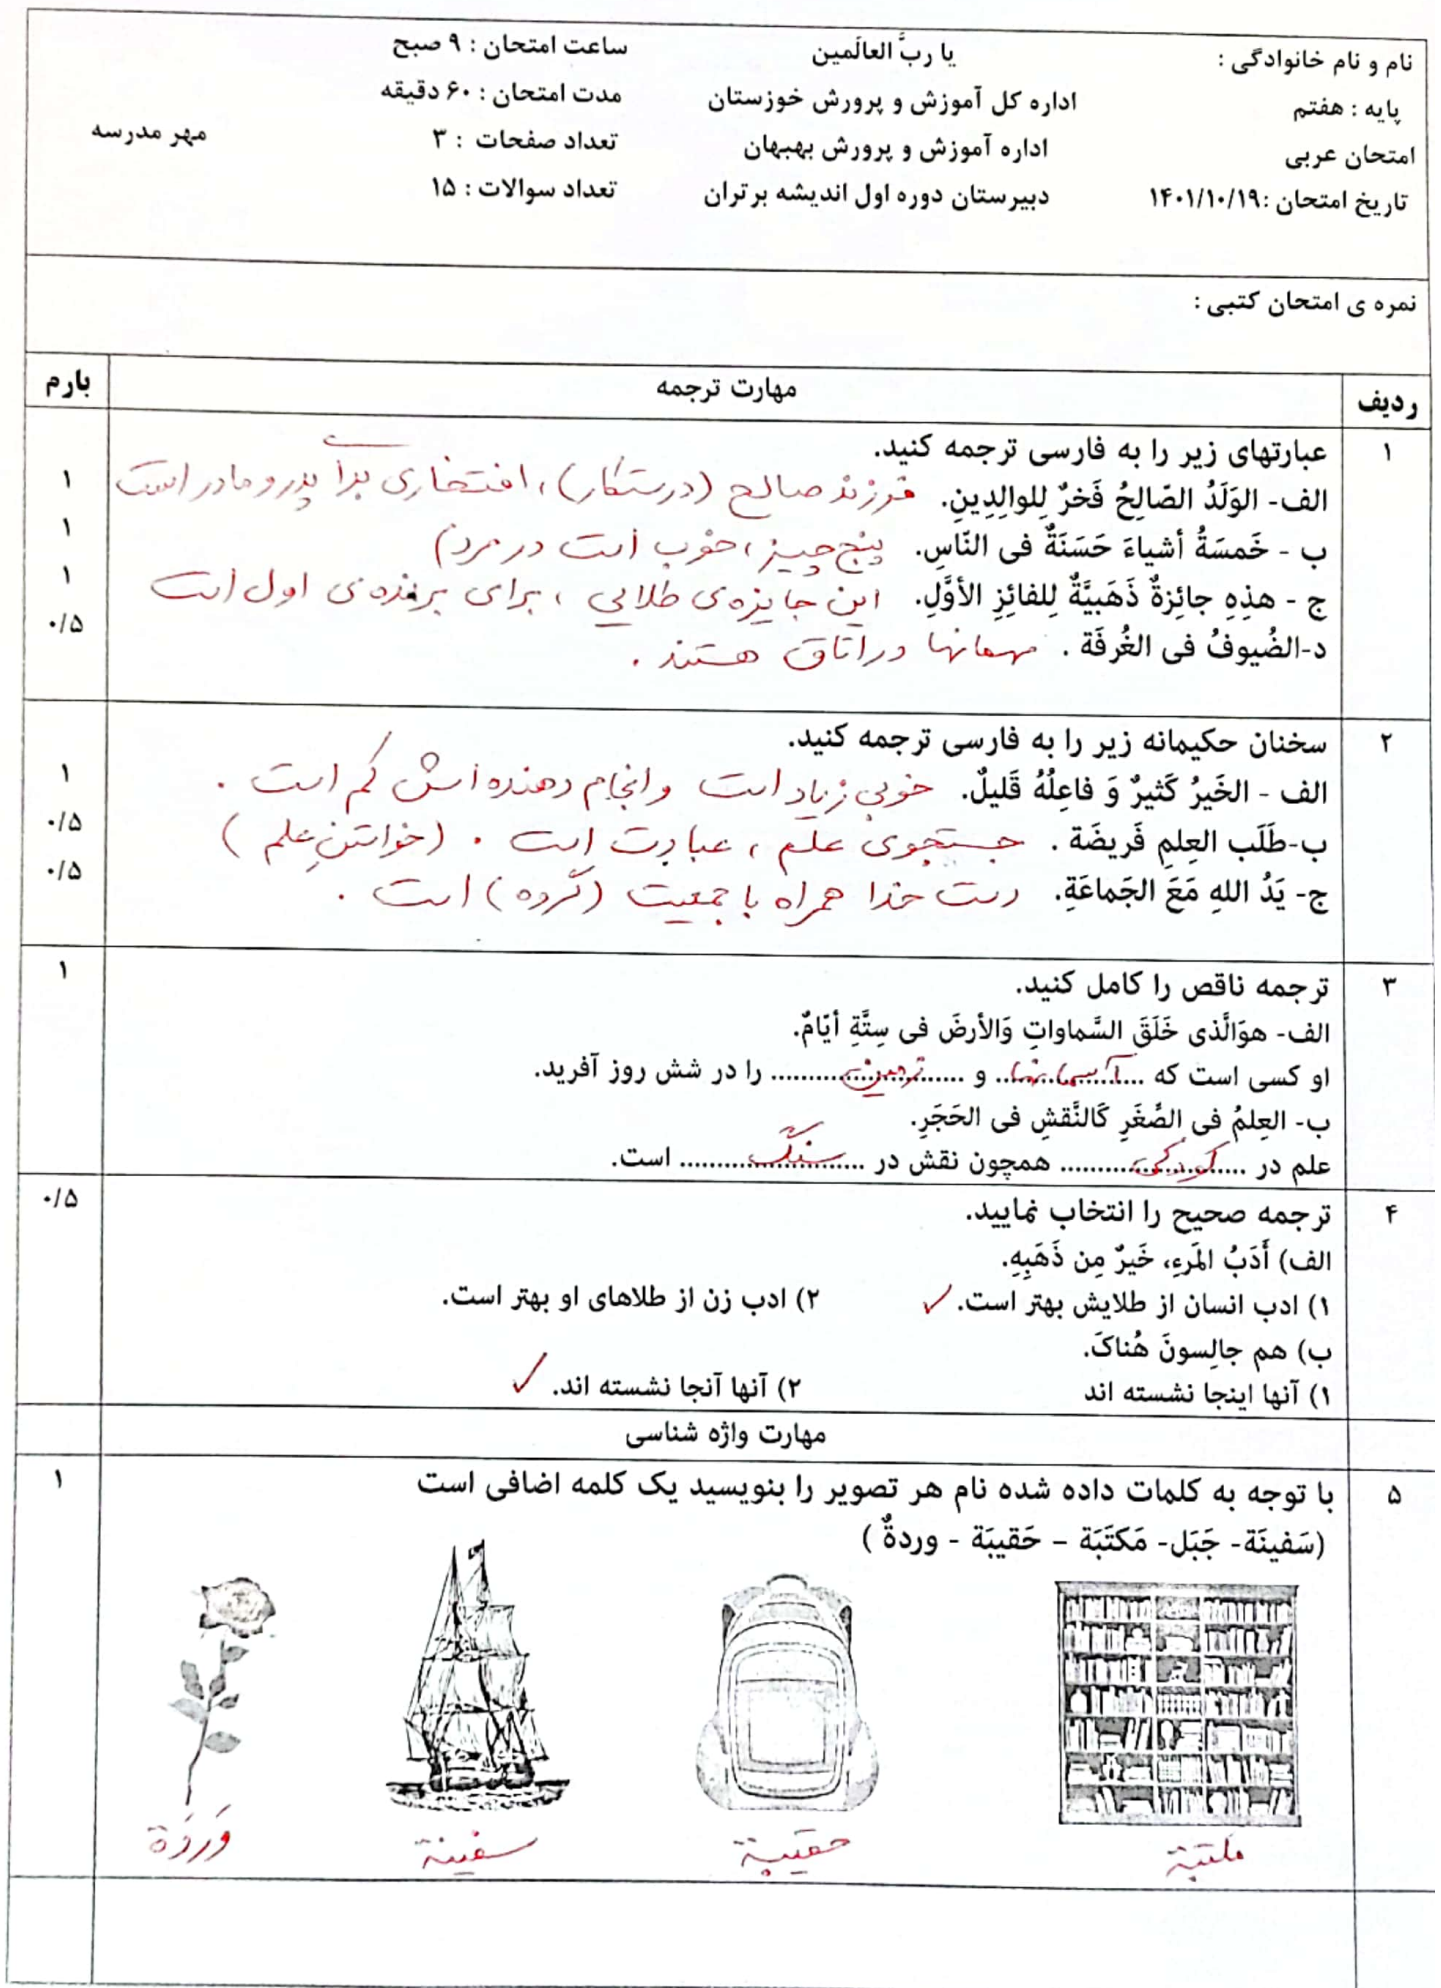 نام و نام خانوادگی :
یا ربَّ العالَمین
ساعت امتحان : ۹ صبح
پایه : هفتم
اداره کل آموزش و پرورش خوزستان
مدت امتحان : ۶۰ دقیقه
امتحان عربی
اداره آموزش و پرورش بهبهان
تعداد صفحات : ۳
مهر مدرسه
تاریخ امتحان :۱۴۰۱/۱۰/۱۹
دبیرستان دوره اول اندیشه برتران
تعداد سوالات : ۱۵
نمره ی امتحان کتبی :
ردیف مهارت ترجمه بارم
۱ عبارتهای زیر را به فارسی ترجمه کنید.
الف- الوَلَدُ الصّالِحُ فَخرٌ لِلوالِدِینِ. فرزند صالح (درستکار) ، افتخاری برای پدر و مادر است ۱
ب - خَمسَةُ أشیاءَ حَسَنَةٌ فی النّاسِ. پنج چیز ، خوب است در مردم ۱
ج - هذِهِ جائِزةٌ ذَهَبیَّةٌ لِلفائِزِ الأوَّلِ. این جایزه ی طلایی ، برای برنده ی اول است ۱
د-الضُیوفُ فی الغُرفَة . مهمانها در اتاق هستند . ۰/۵
۲ سخنان حکیمانه زیر را به فارسی ترجمه کنید.
الف - الخَیرُ کَثیرٌ وَ فاعِلُهُ قَلیلٌ. خوبی زیاد است و انجام دهنده اش کم است . ۱
ب-طَلَب العِلمِ فَریضَة . جستجوی علم ، عبادت است . (خواستنِ علم ) ۰/۵
ج- یَدُ اللهِ مَعَ الجَماعَةِ. دست خدا همراه با جمعیت (گروه) است . ۰/۵
۳ ترجمه ناقص را کامل کنید. ۱
الف- هوَالَّذی خَلَقَ السَّماواتِ وَالأرضَ فی سِتَّةِ أیّامٌ.
او کسی است که آسمانها و زمین را در شش روز آفرید.
ب- العِلمُ فی الصِّغَرِ کَالنَّقشِ فی الحَجَرِ.
علم در کودکی همچون نقش در سنگ است.
۴ ترجمه صحیح را انتخاب نمایید. ۰/۵
الف) أَدَبُ المَرءِ، خَیرٌ مِن ذَهَبِهِ.
۱) ادب انسان از طلایش بهتر است. ✓ ۲) ادب زن از طلاهای او بهتر است.
ب) هم جالِسونَ هُناکَ.
۱) آنها اینجا نشسته اند ۲) آنها آنجا نشسته اند. ✓
مهارت واژه شناسی
۵ با توجه به کلمات داده شده نام هر تصویر را بنویسید یک کلمه اضافی است ۱
(سَفینَة- جَبَل- مَکتَبَة – حَقیبَة - وردةٌ )
مکتبة حقیبة سفینة وَردَة